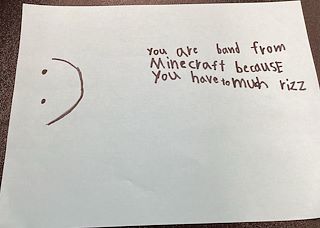 you are band from
Minecraft because
you have to much rizz